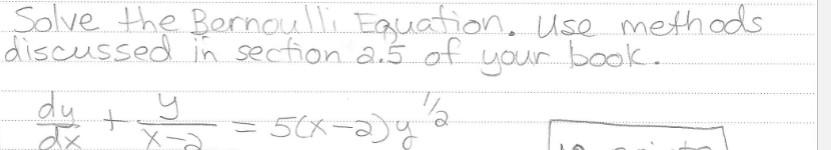 Solve the Bernoulli Equation. Use methods
discussed in section 2.5 of your book.
dy/dx + y/(x-2) = 5(x-2)y^1/2